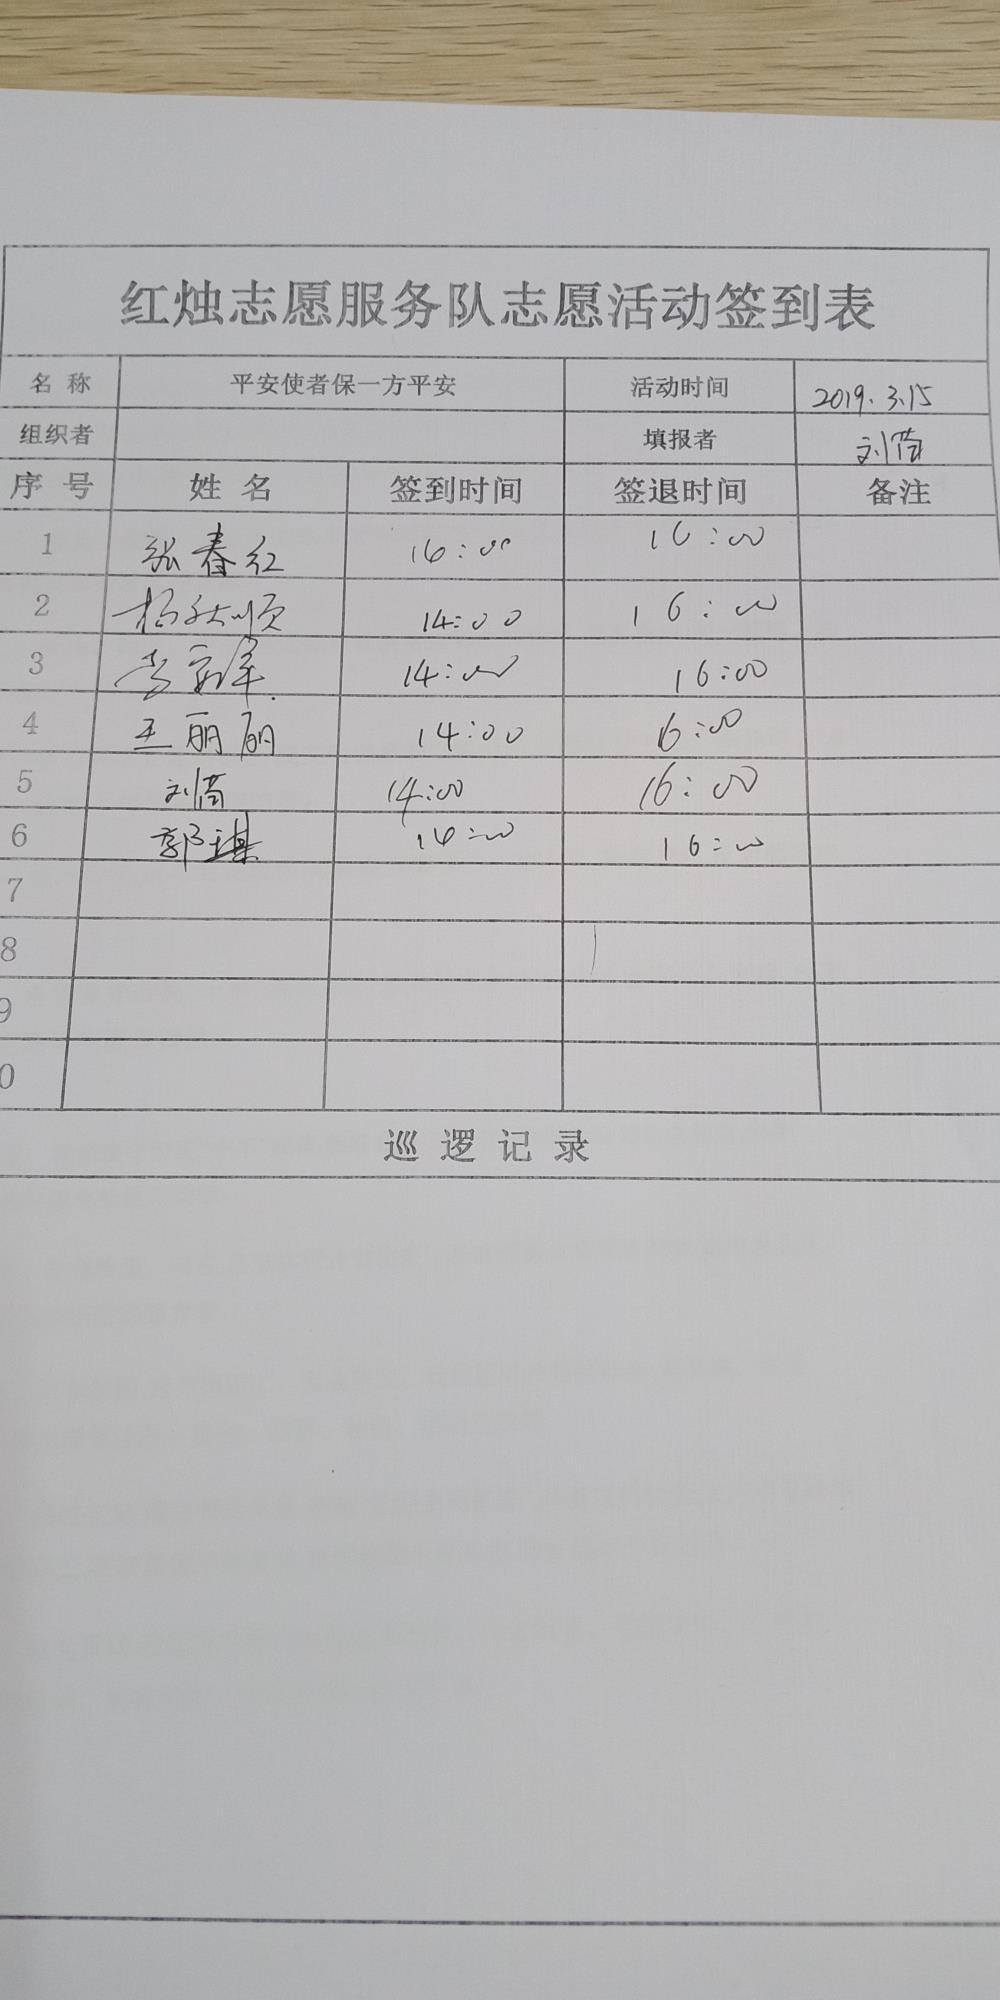 红烛志愿服务队志愿活动签到表
名 称 平安使者保一方平安 活动时间 2019.3.15
组织者 填报者 刘茵
序 号 姓 名 签到时间 签退时间 备注
1 张春红 16:00 16:00
2 杨秋顺 14:00 16:00
3 14:00 16:00
4 王丽丽 14:00 16:00
5 刘茵 14:00 16:00
6 郭琪 14:00 16:00
7
8
9
0
巡 逻 记 录